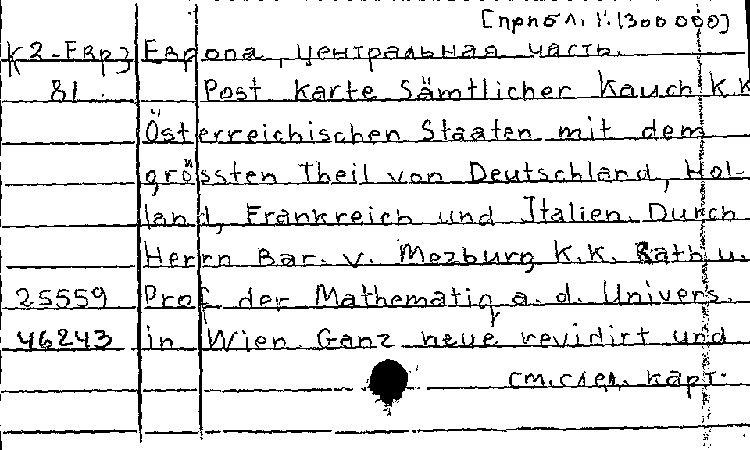 [прибл. 1:1300 000]
К2-Евр} Европа, центральная часть.
81 Post Karte Sämtlicher Kauch K.K
Österreichischen Staaten mit dem
grössten Theil von Deutschland, Hol-
land, Frankreich und Italien. Durch
Herrn Bar. v. Mezburg K.K. Rath u.
25559 Prof. der Mathematiq a. d. Univers.
46243 in Wien Ganz neue revidirt und
см. след. карт.